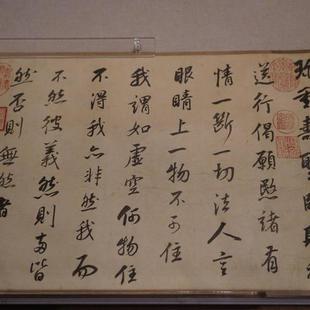 送行偈願愍諸有
情一斷一切法人言
眼睛上一物不可住
我謂如虛空何物住
不得我亦非然我而
不然彼義然則兩皆
然否則無然者